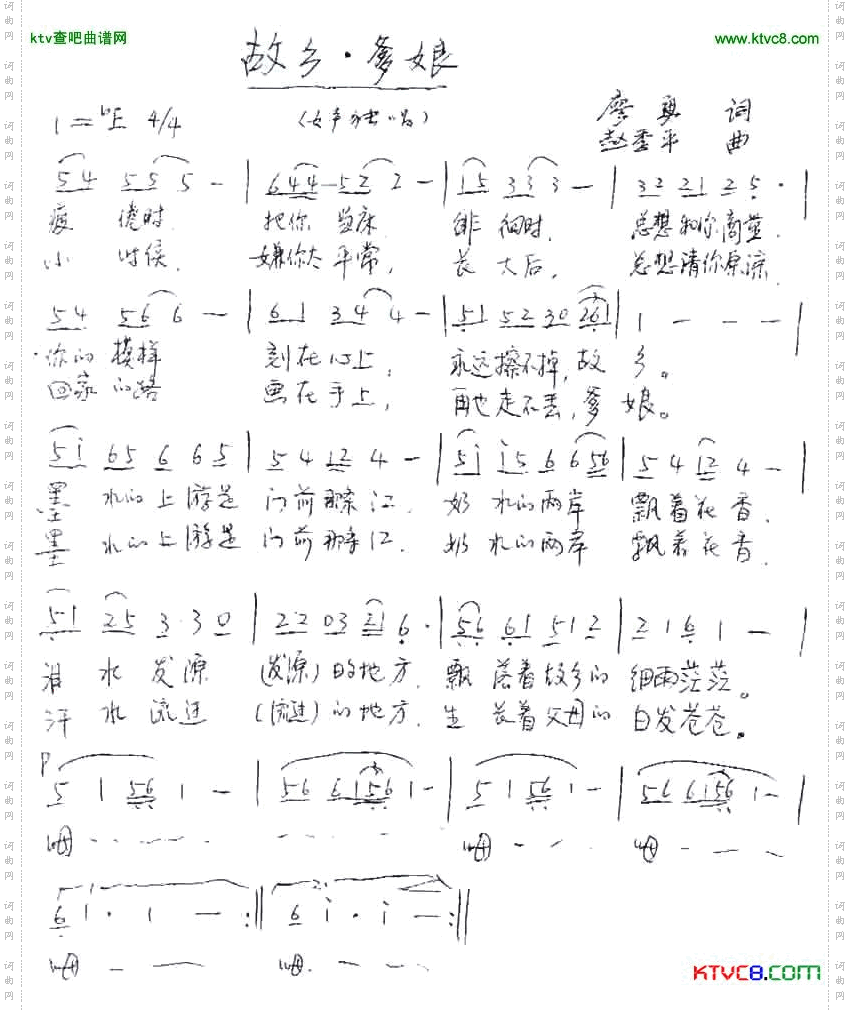 ktv查吧曲谱网 www.ktvc8.com
故乡·爹娘
1=♭E 4/4 (女声独唱) 廖勇 词
赵季平 曲
5 4 5 5 5 - | 6 4 4 5 2 2 - | 1 5 3 3 3 - | 3 2 2 1 2 5 · |
疲倦时, 把你当床, 徘徊时, 总想和你商量,
小时候, 嫌你太平常, 长大后, 总想请你原谅,
5 4 5 6 6 - | 6 1 3 4 4 - | 5 1 5 2 3 0 2 6 1 | 1 - - - |
你的模样 刻在心上, 永远擦不掉, 故乡。
回家的路 画在手上, 再也走不丢, 爹娘。
5 i 6 5 6 6 5 | 5 4 1 2 4 - | 5 i i 5 6 6 5 6 | 5 4 1 2 4 - |
墨水的上游是门前那条江, 奶水的两岸飘着花香,
墨水的上游是门前那条江, 奶水的两岸飘着花香,
5 1 2 5 3 · 3 0 | 2 · 2 0 3 2 1 6 · | 5 6 6 1 5 1 2 | 2 1 6 1 - |
泪水发源 (发源) 的地方, 飘落着故乡的细雨茫茫。
汗水流进 (流进) 的地方, 生长着父母的白发苍苍。
p
5 1 5 6 1 - | 5 6 6 1 5 6 1 - | 5 1 5 6 1 - | 5 6 6 1 5 6 1 - |
呣 - - - - - - - 呣 - - - 呣 - - -
1. 2.
6 1 · 1 - :‖ 6 i · i - :‖
呣 - - - 呣 - - -
KTVC8.COM
词曲网